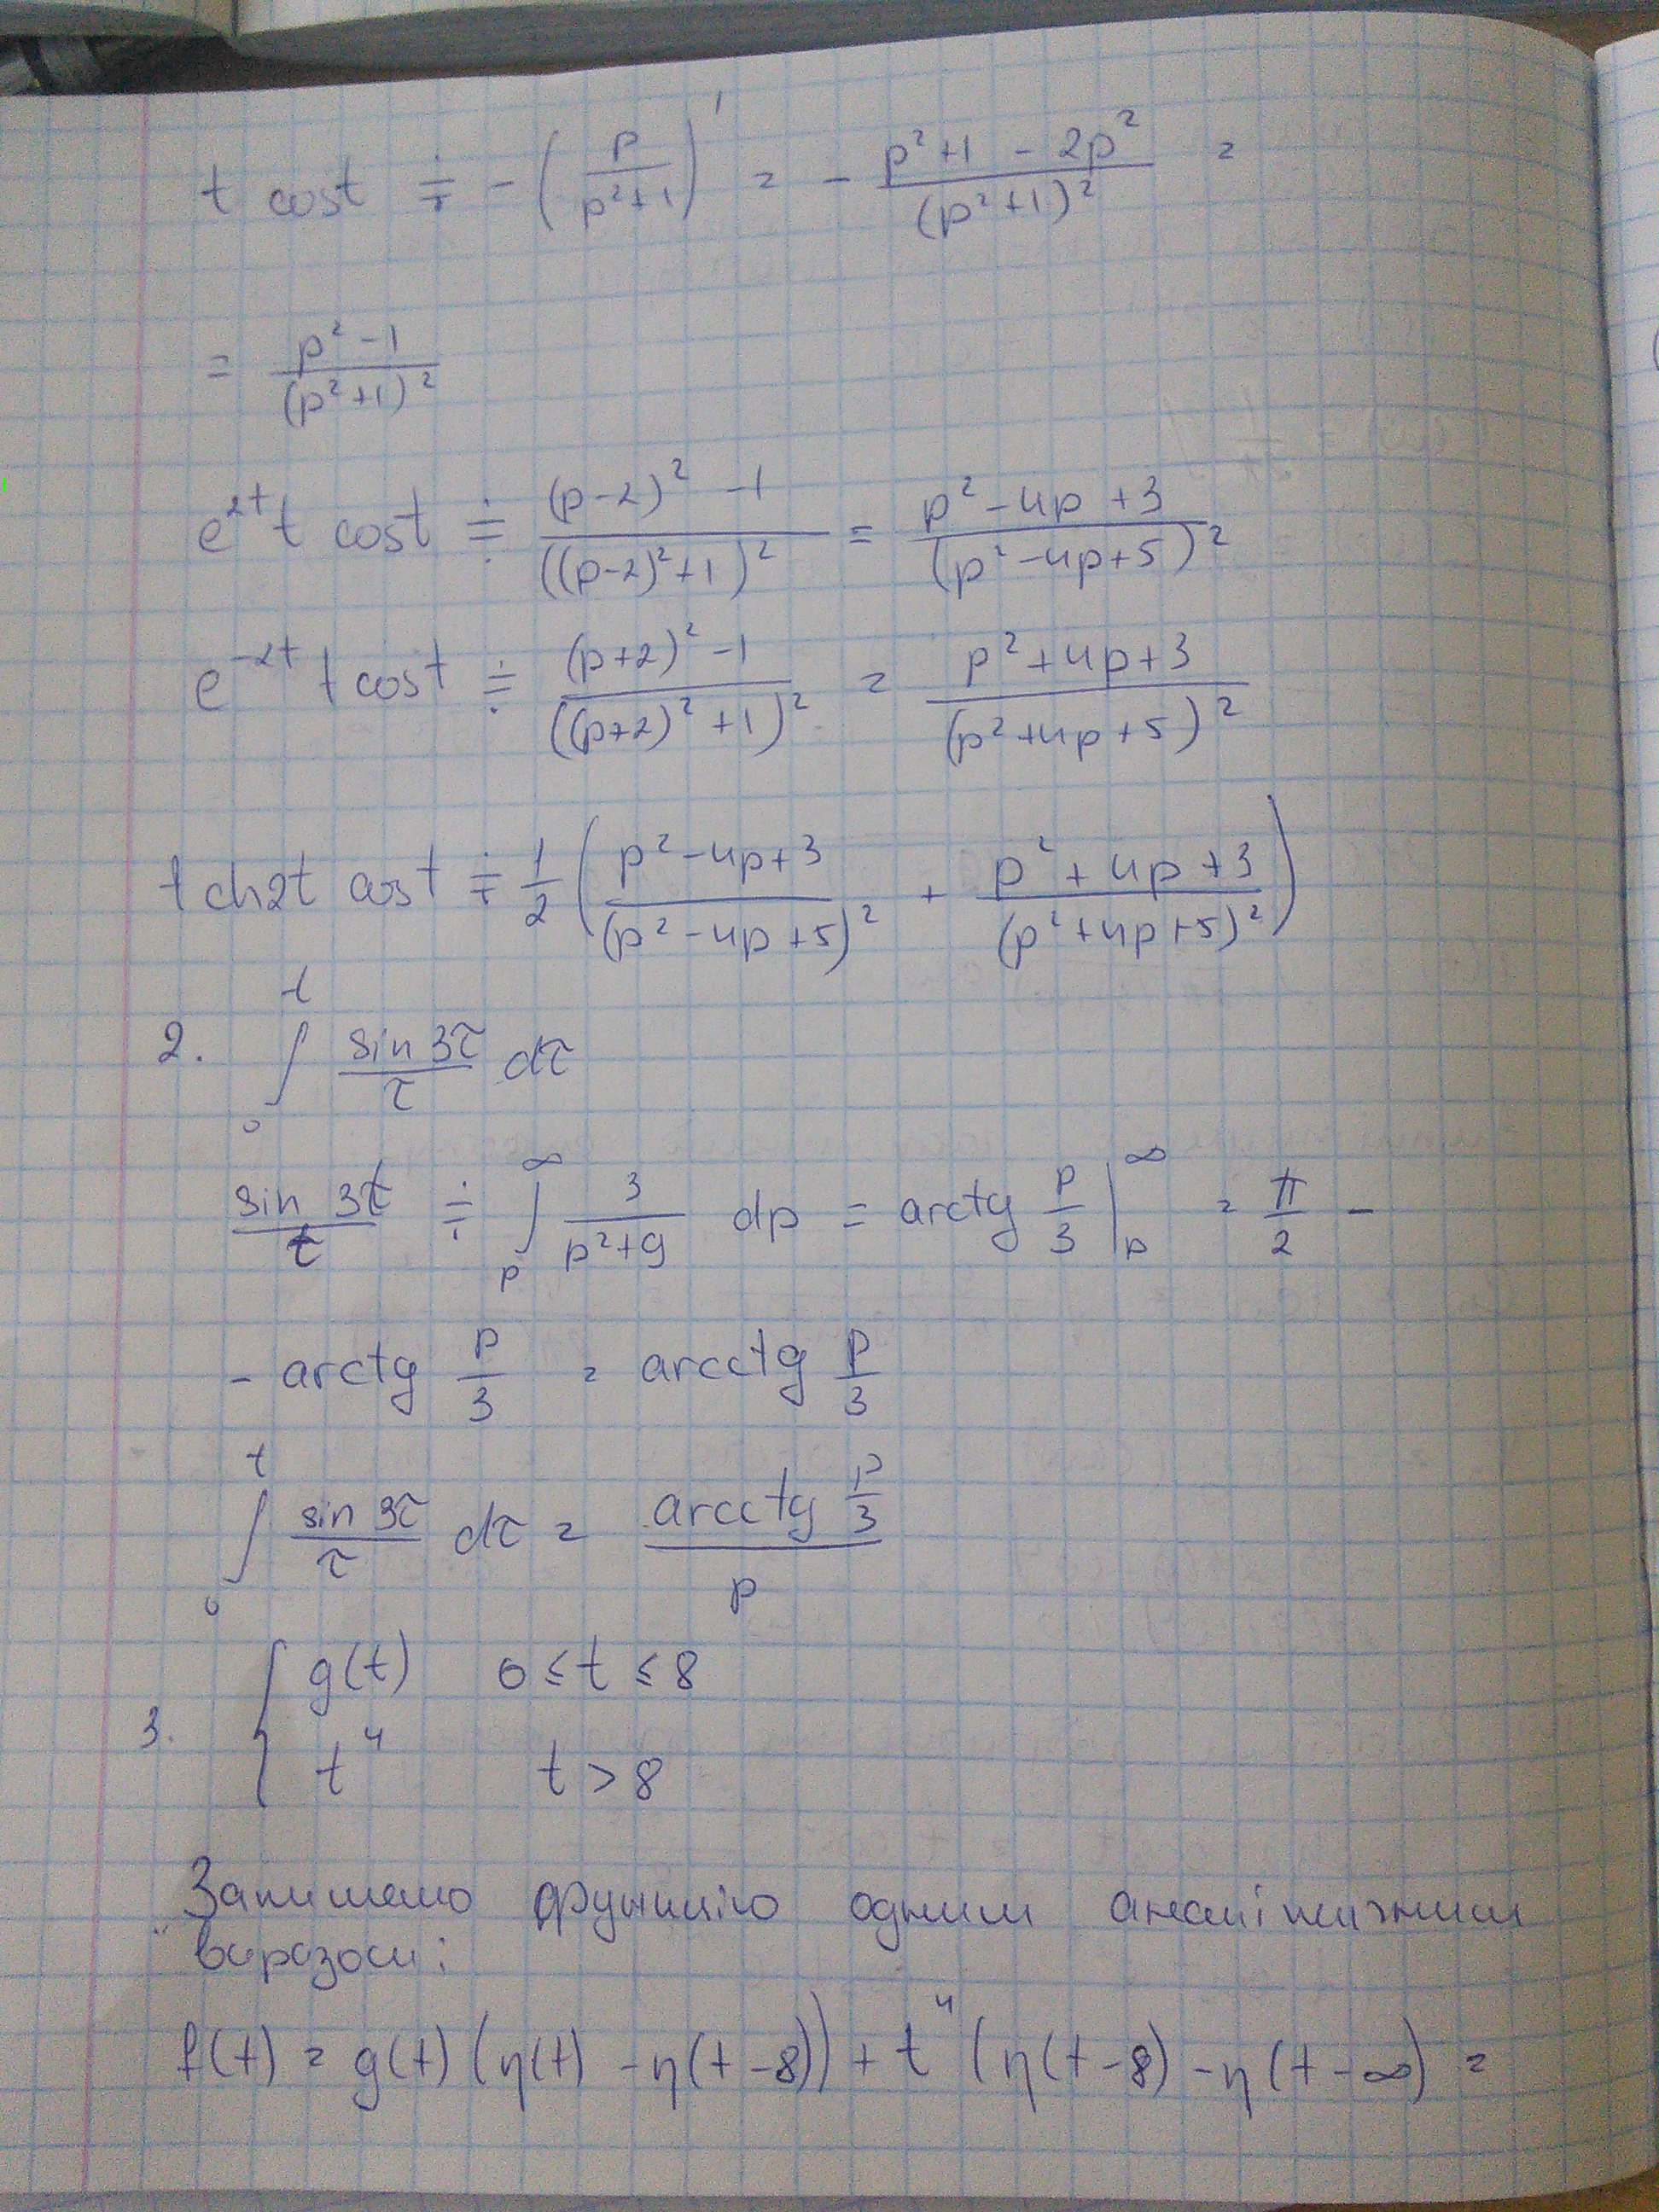 t cost ≑ - (p/(p²+1))' = - (p²+1 - 2p²)/(p²+1)² =
= (p²-1)/(p²+1)²
e^{2t} t cost ≑ ((p-2)²-1)/((p-2)²+1)² = (p²-4p+3)/(p²-4p+5)²
e^{-2t} t cost ≑ ((p+2)²-1)/((p+2)²+1)² = (p²+4p+3)/(p²+4p+5)²
t ch2t cost ≑ 1/2 ((p²-4p+3)/(p²-4p+5)² + (p²+4p+3)/(p²+4p+5)²)
2. ∫₀^t sin 3τ/τ dτ
sin 3t/t ≑ ∫_p^∞ 3/(p²+9) dp = arctg p/3 |_p^∞ = π/2 -
- arctg p/3 = arcctg p/3
∫₀^t sin 3τ/τ dτ = (arcctg p/3)/p
3. { g(t) 0 ≤ t ≤ 8
t⁴ t > 8
Запишемо функцію одним аналітичним
виразом:
f(t) = g(t) (η(t) - η(t-8)) + t⁴ (η(t-8) - η(t-∞) =